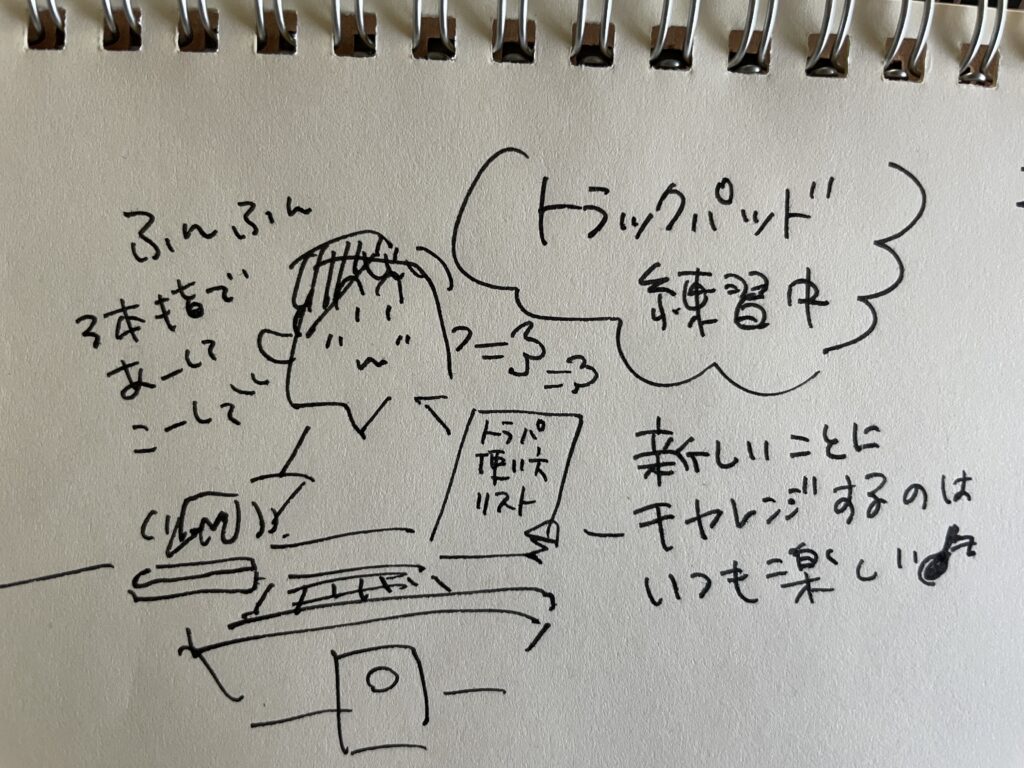 トラックパッド
練習中
ふんふん
3本指で
あーして
こーして
トラパ
使い方
リスト
新しいことに
チャレンジするのは
いつも楽しい♪